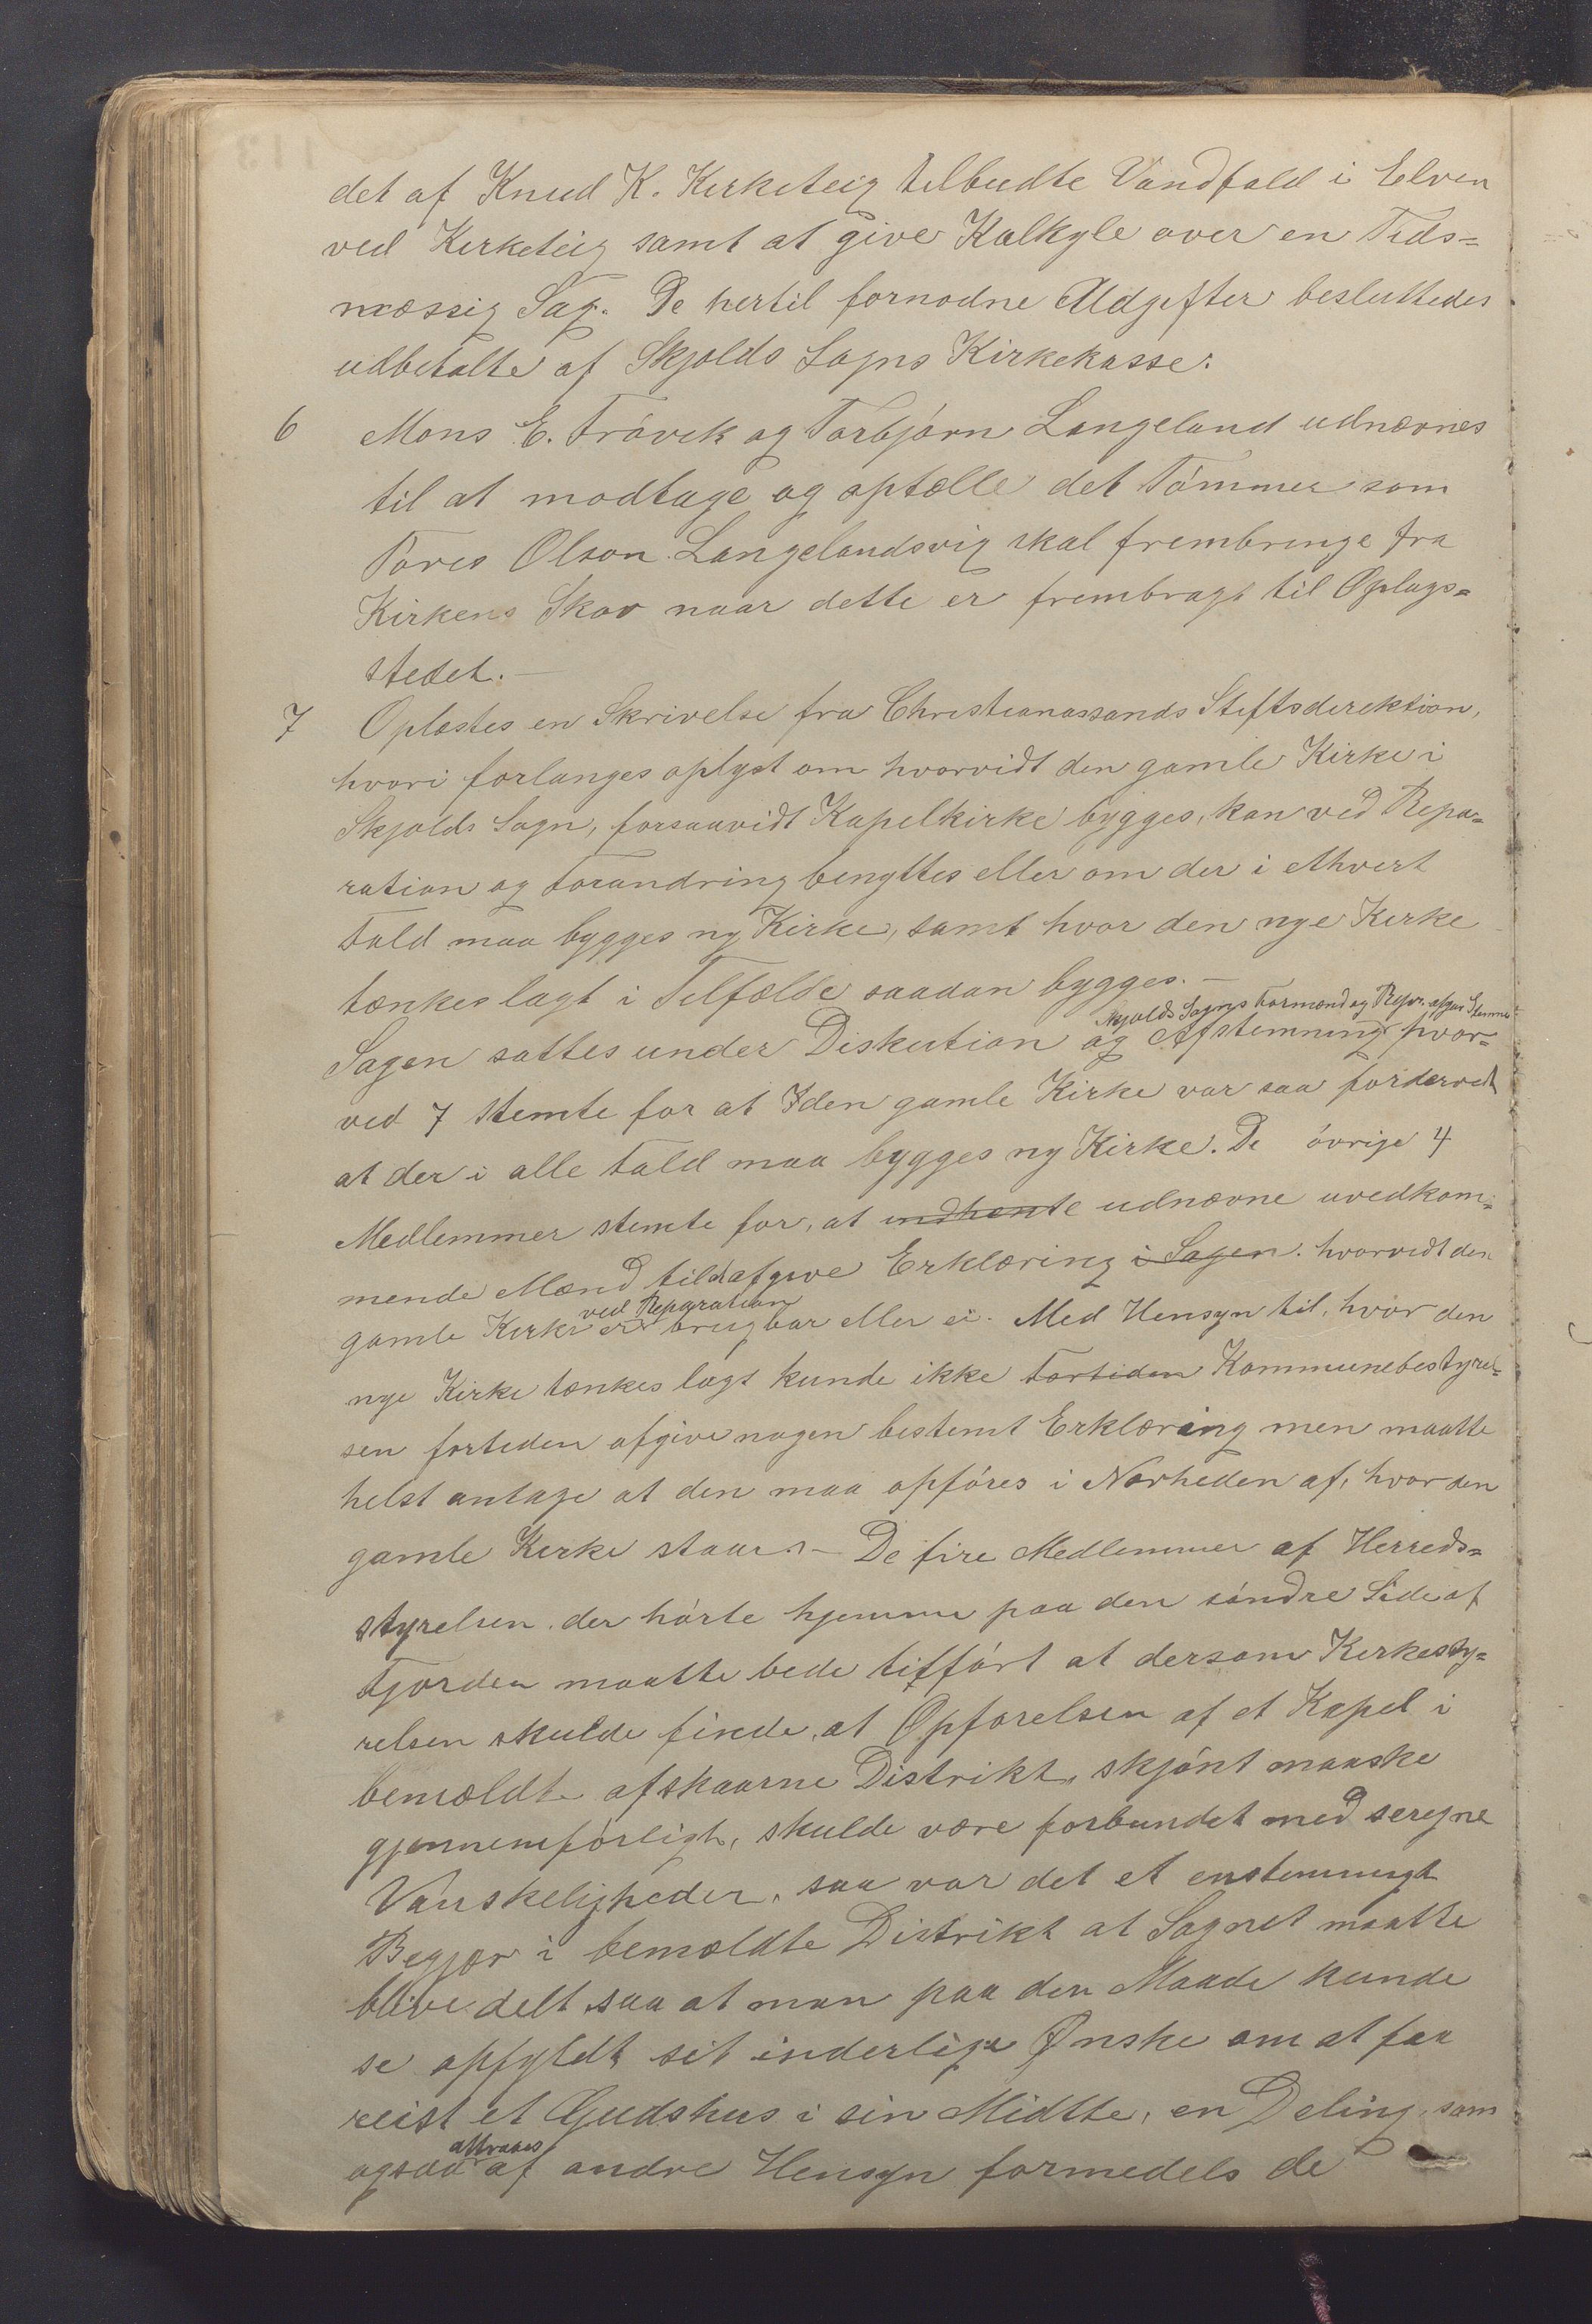 det af Knud K. Kirketeig tilbudte Vandfald i Elven
ved Kirketeig samt at give Kalkyle over en Tids=
mæssig Sag. De hertil fornødne Uldgifter besluttedes
udbetalte af Skjolds Sogns Kirkekasse.
6 Mons E. Frövik og Torbjörn Langeland udnævnes
til at modtage og optælle det Tömmer som
Tores Olson Langelandsvig skal frembringe fra
Kirkens Skov naar dette er frembragt til Oplags=
stedet. —
7 Oplæstes en Skrivelse fra Christianassands Stiftsdirektion,
hvori forlanges oplyst om hvorvidt den gamle Kirke i
Skjolds Sogn, forsaavidt Kapelkirke bygges, kan ved Repa=
ration og Forandring benyttes eller om der i ethvert
Fald maa bygges ny Kirke, samt hvor den nye Kirke
tænkes lagt i Tilfælde saadan bygges. —
Skjolds Sogns Formænd og Repr. afgav Stemme
Sagen sattes under Diskution og Afstemning hvor=
ved 7 stemte for at den gamle Kirke var saa fordærvet
at der i alle Fald maa bygges ny Kirke. De övrige 4
Medlemmer stemte for, at indhente udnævne uvedkom=
mende Mænd til at afgive Erklæring i Sagen. hvorvidt den
ved Reparation
gamle Kirke er brugbar eller ei. Med Hensyn til, hvor den
nye Kirke tænkes lagt kunde ikke Fortiden Kommunebestyrel=
sen fortiden afgive nogen bestemt Erklæring men maatte
helst antage at den maa opföres i Nærheden af, hvor den
gamle Kirke staar. — De fire Medlemmer af Herreds=
styrelsen der hörte hjemme paa den söndre Side af
Fjorden maatte bede tilfört at dersom Kirkesty=
relsen skulde finde at Opførelsen af et Kapel i
bemældte afskaarne Distrikt, skjönt maaske
gjennemförligt, skulde være forbundet med seregne
Vanskeligheder, saa var det et enstemmigt
Begjær i bemældte Distrikt at Sognet maatte
blive delt saa at man paa den Maade kunde
se opfyldt sit inderlige Ønske om at faa
reist et Gudshus i sin Midtte, en Deling som
attraaes
ogsaa af andre Hensyn formedels de